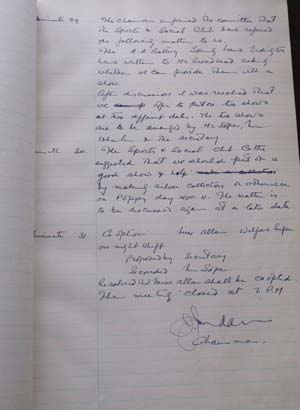 Minute 29 The Chairman informed the committee that
the Sports & Social Club have refered
the following matter to us.
The A.A Battery Spring Lane Erdington
have written to Mr Broadhead asking
whether we can provide them with a
show.
After discussion it was resolved that
we to put on two shows
at two different dates. The two shows
are to be arranged by Mr Soper, Mr
Wheeler & the Secretary.
Minute 30 The Sports & Social Club Cttee
suggested that we should put on a
good show & help make a collection
by making silver collection or otherwise
on Poppy day Nov. 11. The matter is
to be discussed again at a later date
Minute 31 Co option Miss Allan Welfare Supr
on night shift
Proposed by Secretary
Seconded Mr Soper.
Resolved that Miss Allan shall be co opted.
The meeting closed at 7 P.M.
Chairman.